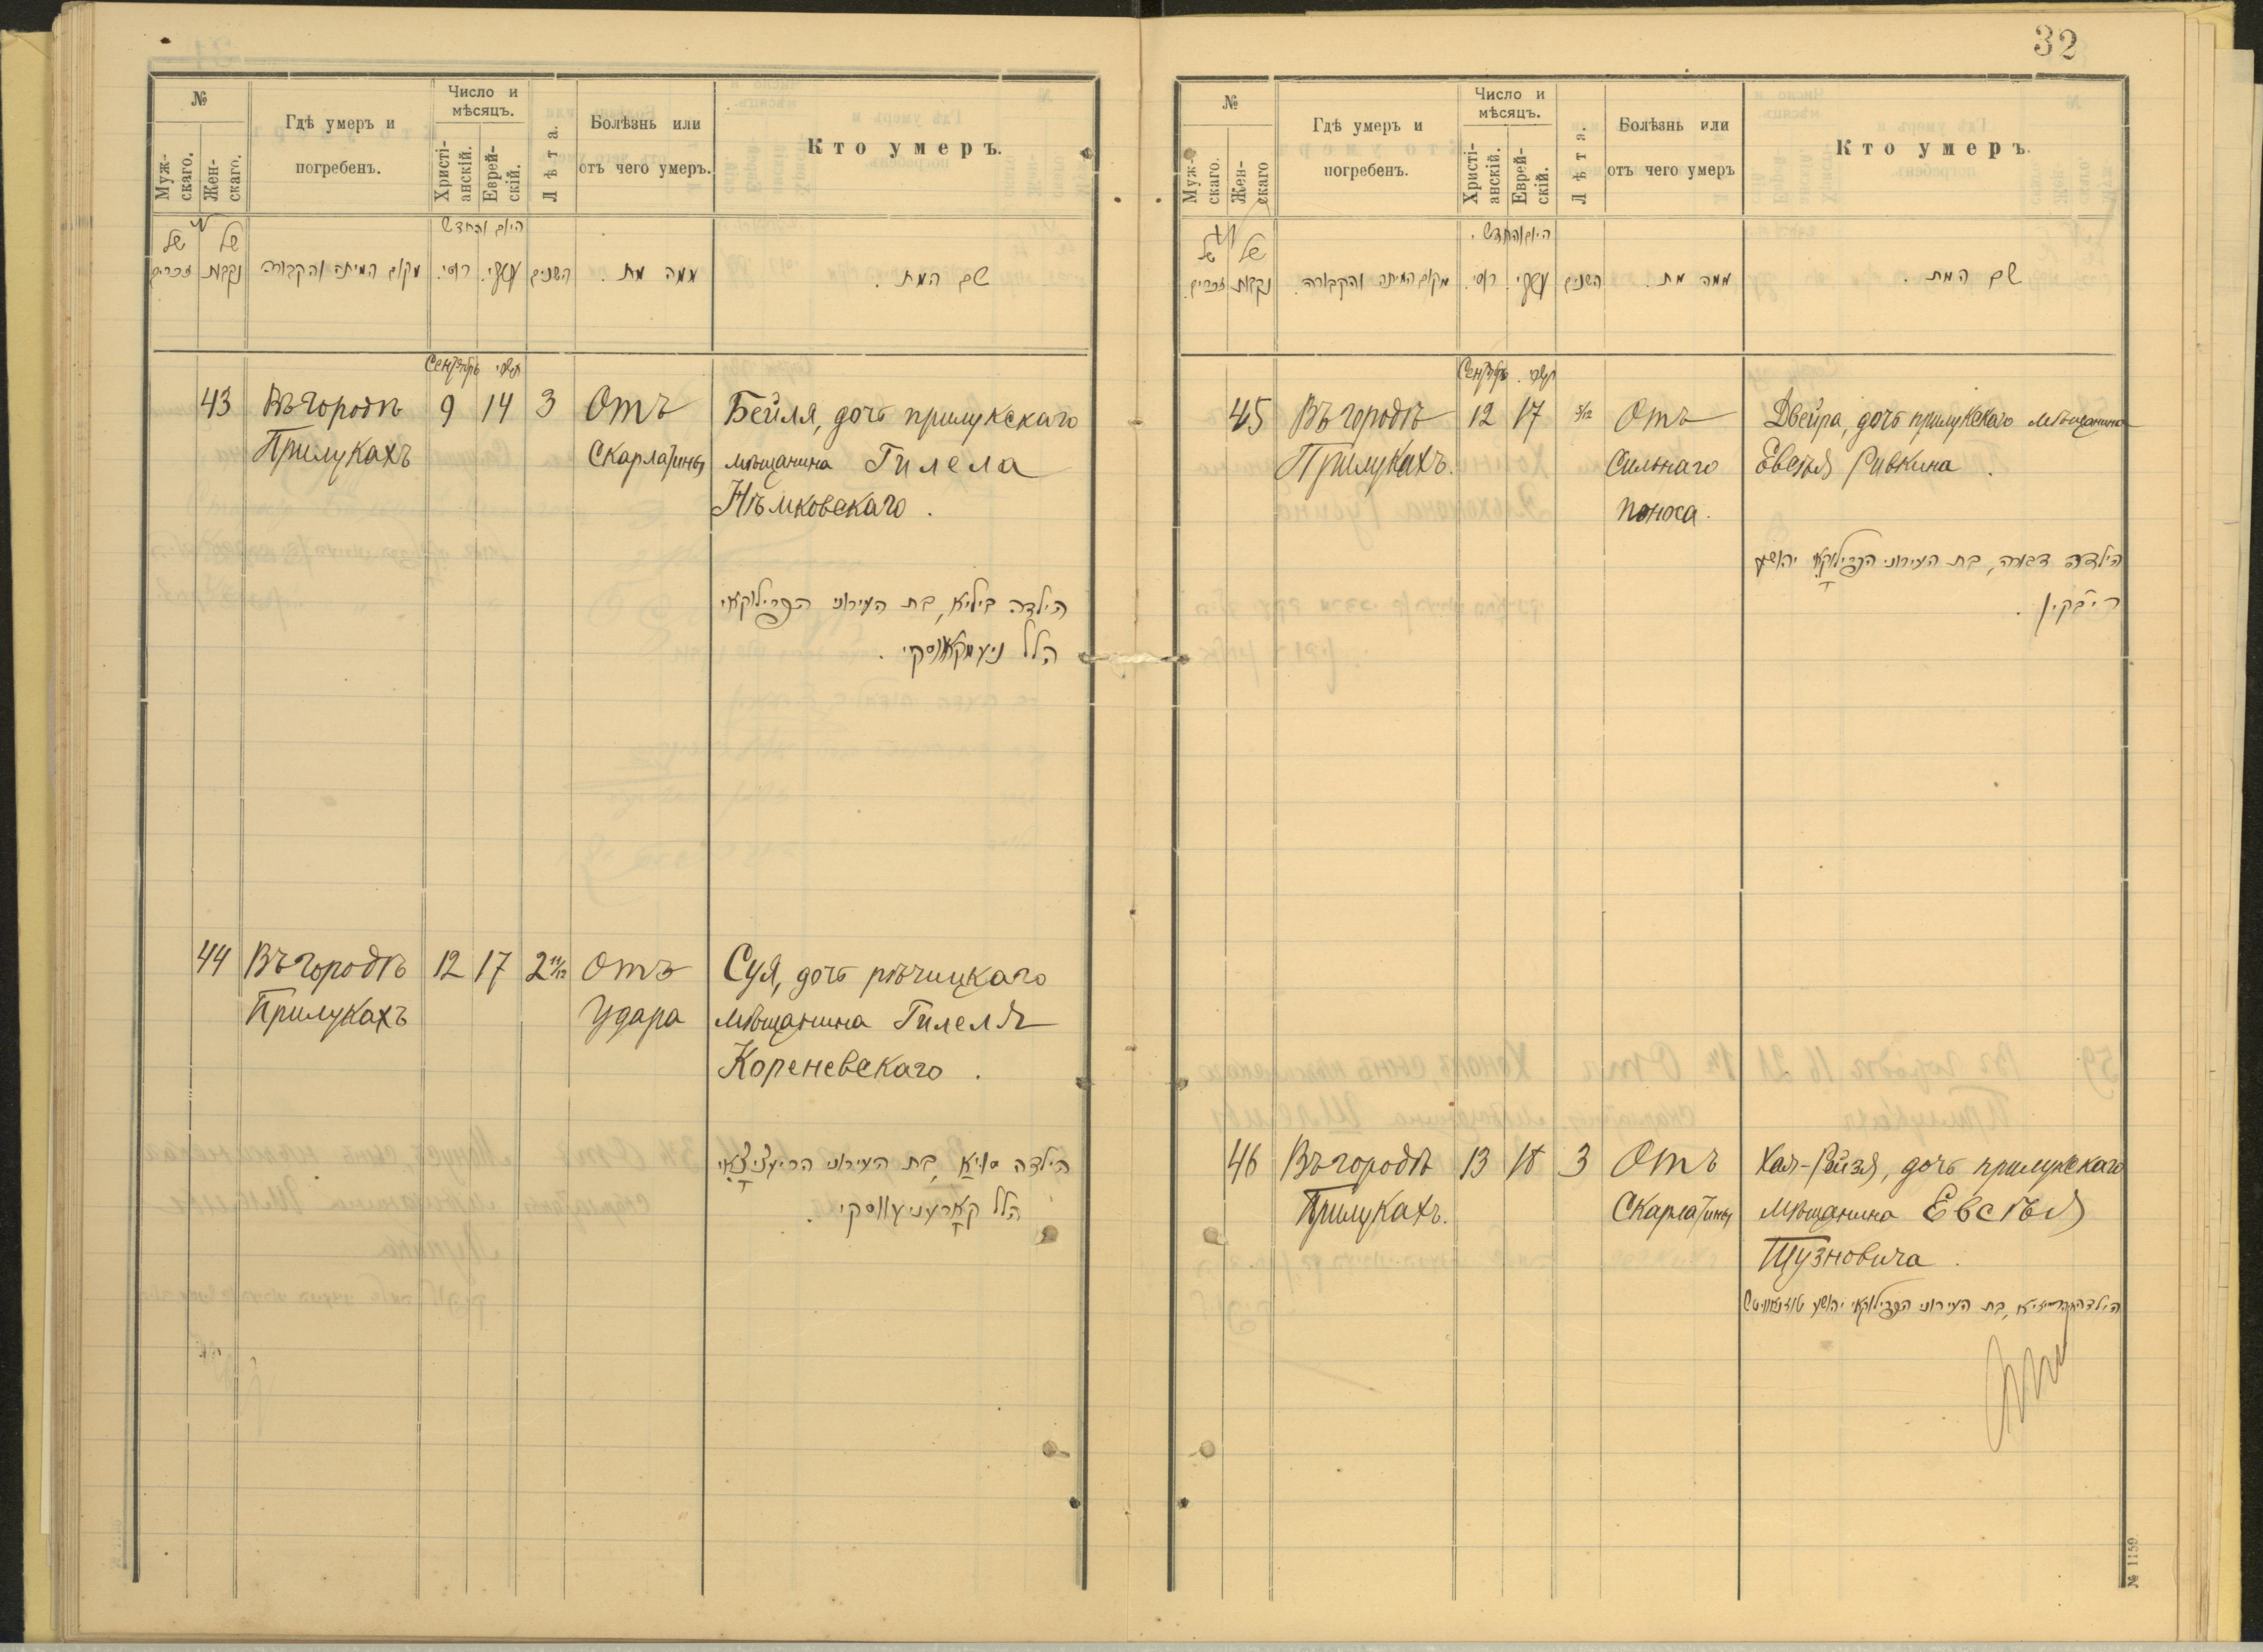 32
№
Муж-
скаго.
Жен-
скаго.
Гдѣ умеръ и
погребенъ.
Число и
мѣсяцъ.
Христі-
анскій.
Еврей-
скій.
Лѣта.
Болѣзнь или
отъ чего умеръ.
Кто умеръ.
היום והחדש
של
זכרים
של
נקבות
מקום המיתה והקבורה
רוסי.
עברי.
השנים
ממה מת.
שם המת.
Сентябрь תשרי
43 Въ городѣ 9 14 3 Отъ Бейля, дочь прилукскаго
Прилукахъ Скарлатины мѣщанина Гилела
Нѣмковскаго.
הילדה ביליא, בת העירוני הפרילוקאי
הלל ניעמקאווסקי.
44 Въ городѣ 12 17 2 11/12 Отъ Суя, дочь рѣчицкаго
Прилукахъ Удара мѣщанина Гилеля
Кореневскаго.
הילדה סויא, בת העירוני הריעציצאי
הלל קארעניעווסקי.
№
Муж-
скаго.
Жен-
скаго
Гдѣ умеръ и
погребенъ.
Число и
мѣсяцъ.
Христі-
анскій.
Еврей-
скій.
Лѣта.
Болѣзнь или
отъ чего умеръ
Кто умеръ.
היום והחדש.
של
זכרים.
של
נקבות
מקום המיתה והקבורה.
רוסי.
עברי.
השנים
ממה מת.
שם המת.
Сентябрь תשרי
45 Въ городѣ 12 17 5/12 Отъ Двейра, дочь прилукскаго мѣщанина
Прилукахъ. Сильнаго Евсѣя Ривкина.
поноса.
הילדה דבורה, בת העירוני הפרילוקאי יהושע
ריבקין.
46 Въ городѣ 13 18 3 Отъ Хая-Рейзя, дочь прилукскаго
Прилукахъ. Скарлатины мѣщанина Евсѣя
Тузновича.
בת העירוני הפרילוקאי יהושע
№ 1159